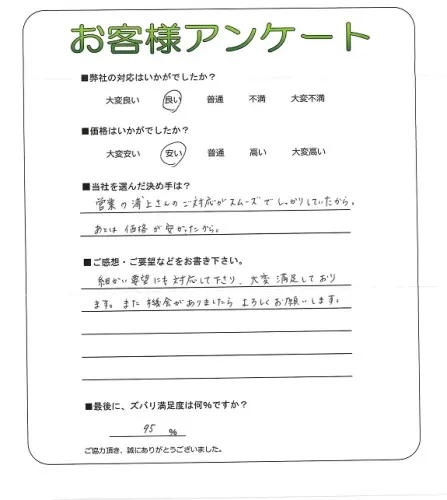 お客様アンケート
■弊社の対応はいかがでしたか？
大変良い 良い 普通 不満 大変不満
■価格はいかがでしたか？
大変安い 安い 普通 高い 大変高い
■当社を選んだ決め手は？
営業の浦上さんのご対応がスムーズでしっかりしていたから。
あとは価格が安かったから。
■ご感想・ご要望などをお書き下さい。
細かい要望にも対応して下さり、大変満足しており
ます。また機会がありましたらよろしくお願いします。
■最後に、ズバリ満足度は何%ですか？
95 %
ご協力頂き、誠にありがとうございました。